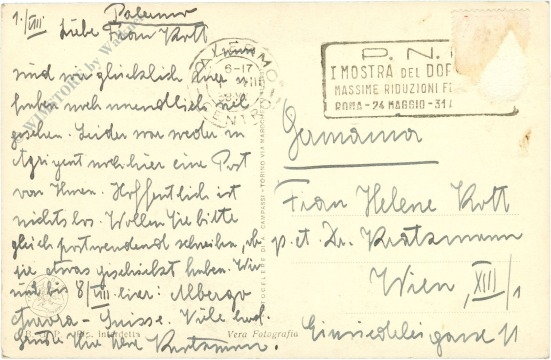 1./VIII Palermo
Liebe Frau Kott
sind nun glücklich hier
haben noch unendlich viel
gesehen. Leider war weder in
Agrigent noch hier eine Post
von Ihnen. Hoffentlich ist
nichts los. Wollen Sie bitte
gleich postwendend schreiben, ob
sie etwas geschickt haben. Wir
sind bis 8/VIII hier: Albergo
Aurora-Suisse. Viele
Ihre
© WIMSTORY by
6-17
P.N.
I MOSTRA DEL DOP
MASSIME RIDUZIONI FE
ROMA - 24 MAGGIO - 31
Germania
Frau Helene Kott
p.t. Dr. Kratzmann
Wien, XIII/1
Einsiedeleigasse 11
Vera Fotografia